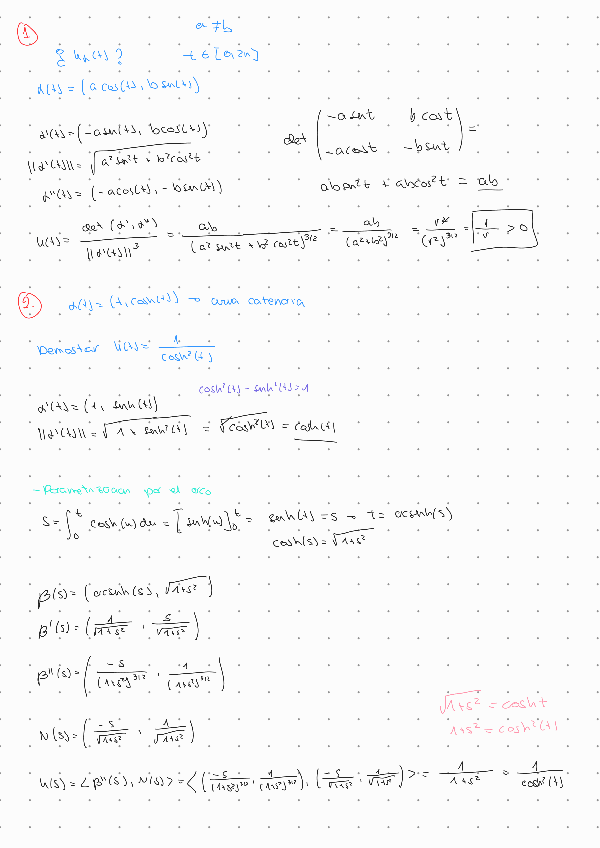 1
a ≠ b
¿ k_α(t) ?
t ∈ [0, 2π]
α(t) = (a cos(t), b sen(t))
α'(t) = (-a sen(t), b cos(t))
||α'(t)|| = √(a² sen²t + b² cos²t)
α''(t) = (-a cos(t), -b sen(t))
det ( -a sen t   b cos t
-a cos t   -b sen t ) =
ab sen²t + ab cos²t = ab
k(t) = det(α', α'') / ||α'(t)||³ = ab / (a² sen²t + b² cos²t)^3/2 = ab / (a²+b²)^3/2 = r² / (r²)^3/2 = 1/r > 0
2.
α(t) = (t, cosh(t)) → curva catenaria
Demostrar k(t) = 1 / cosh²(t)
cosh²(t) - senh²(t) = 1
α'(t) = (1, senh(t))
||α'(t)|| = √(1 + senh²(t)) = √(cosh²(t)) = cosh(t)
- Parametrización por el arco
s = ∫₀ᵗ cosh(u) du = [senh(u)]₀ᵗ = senh(t) = s → t = arcsenh(s)
cosh(s) = √(1+s²)
β(s) = (arcsenh(s), √(1+s²))
β'(s) = (1/√(1+s²), s/√(1+s²))
β''(s) = (-s/(1+s²)^3/2, 1/(1+s²)^3/2)
√(1+s²) = cosh t
1+s² = cosh²(t)
N(s) = (-s/√(1+s²), 1/√(1+s²))
k(s) = <β''(s), N(s)> = <(-s/(1+s²)^3/2, 1/(1+s²)^3/2), (-s/√(1+s²), 1/√(1+s²))> = 1/(1+s²) = 1/cosh²(t)